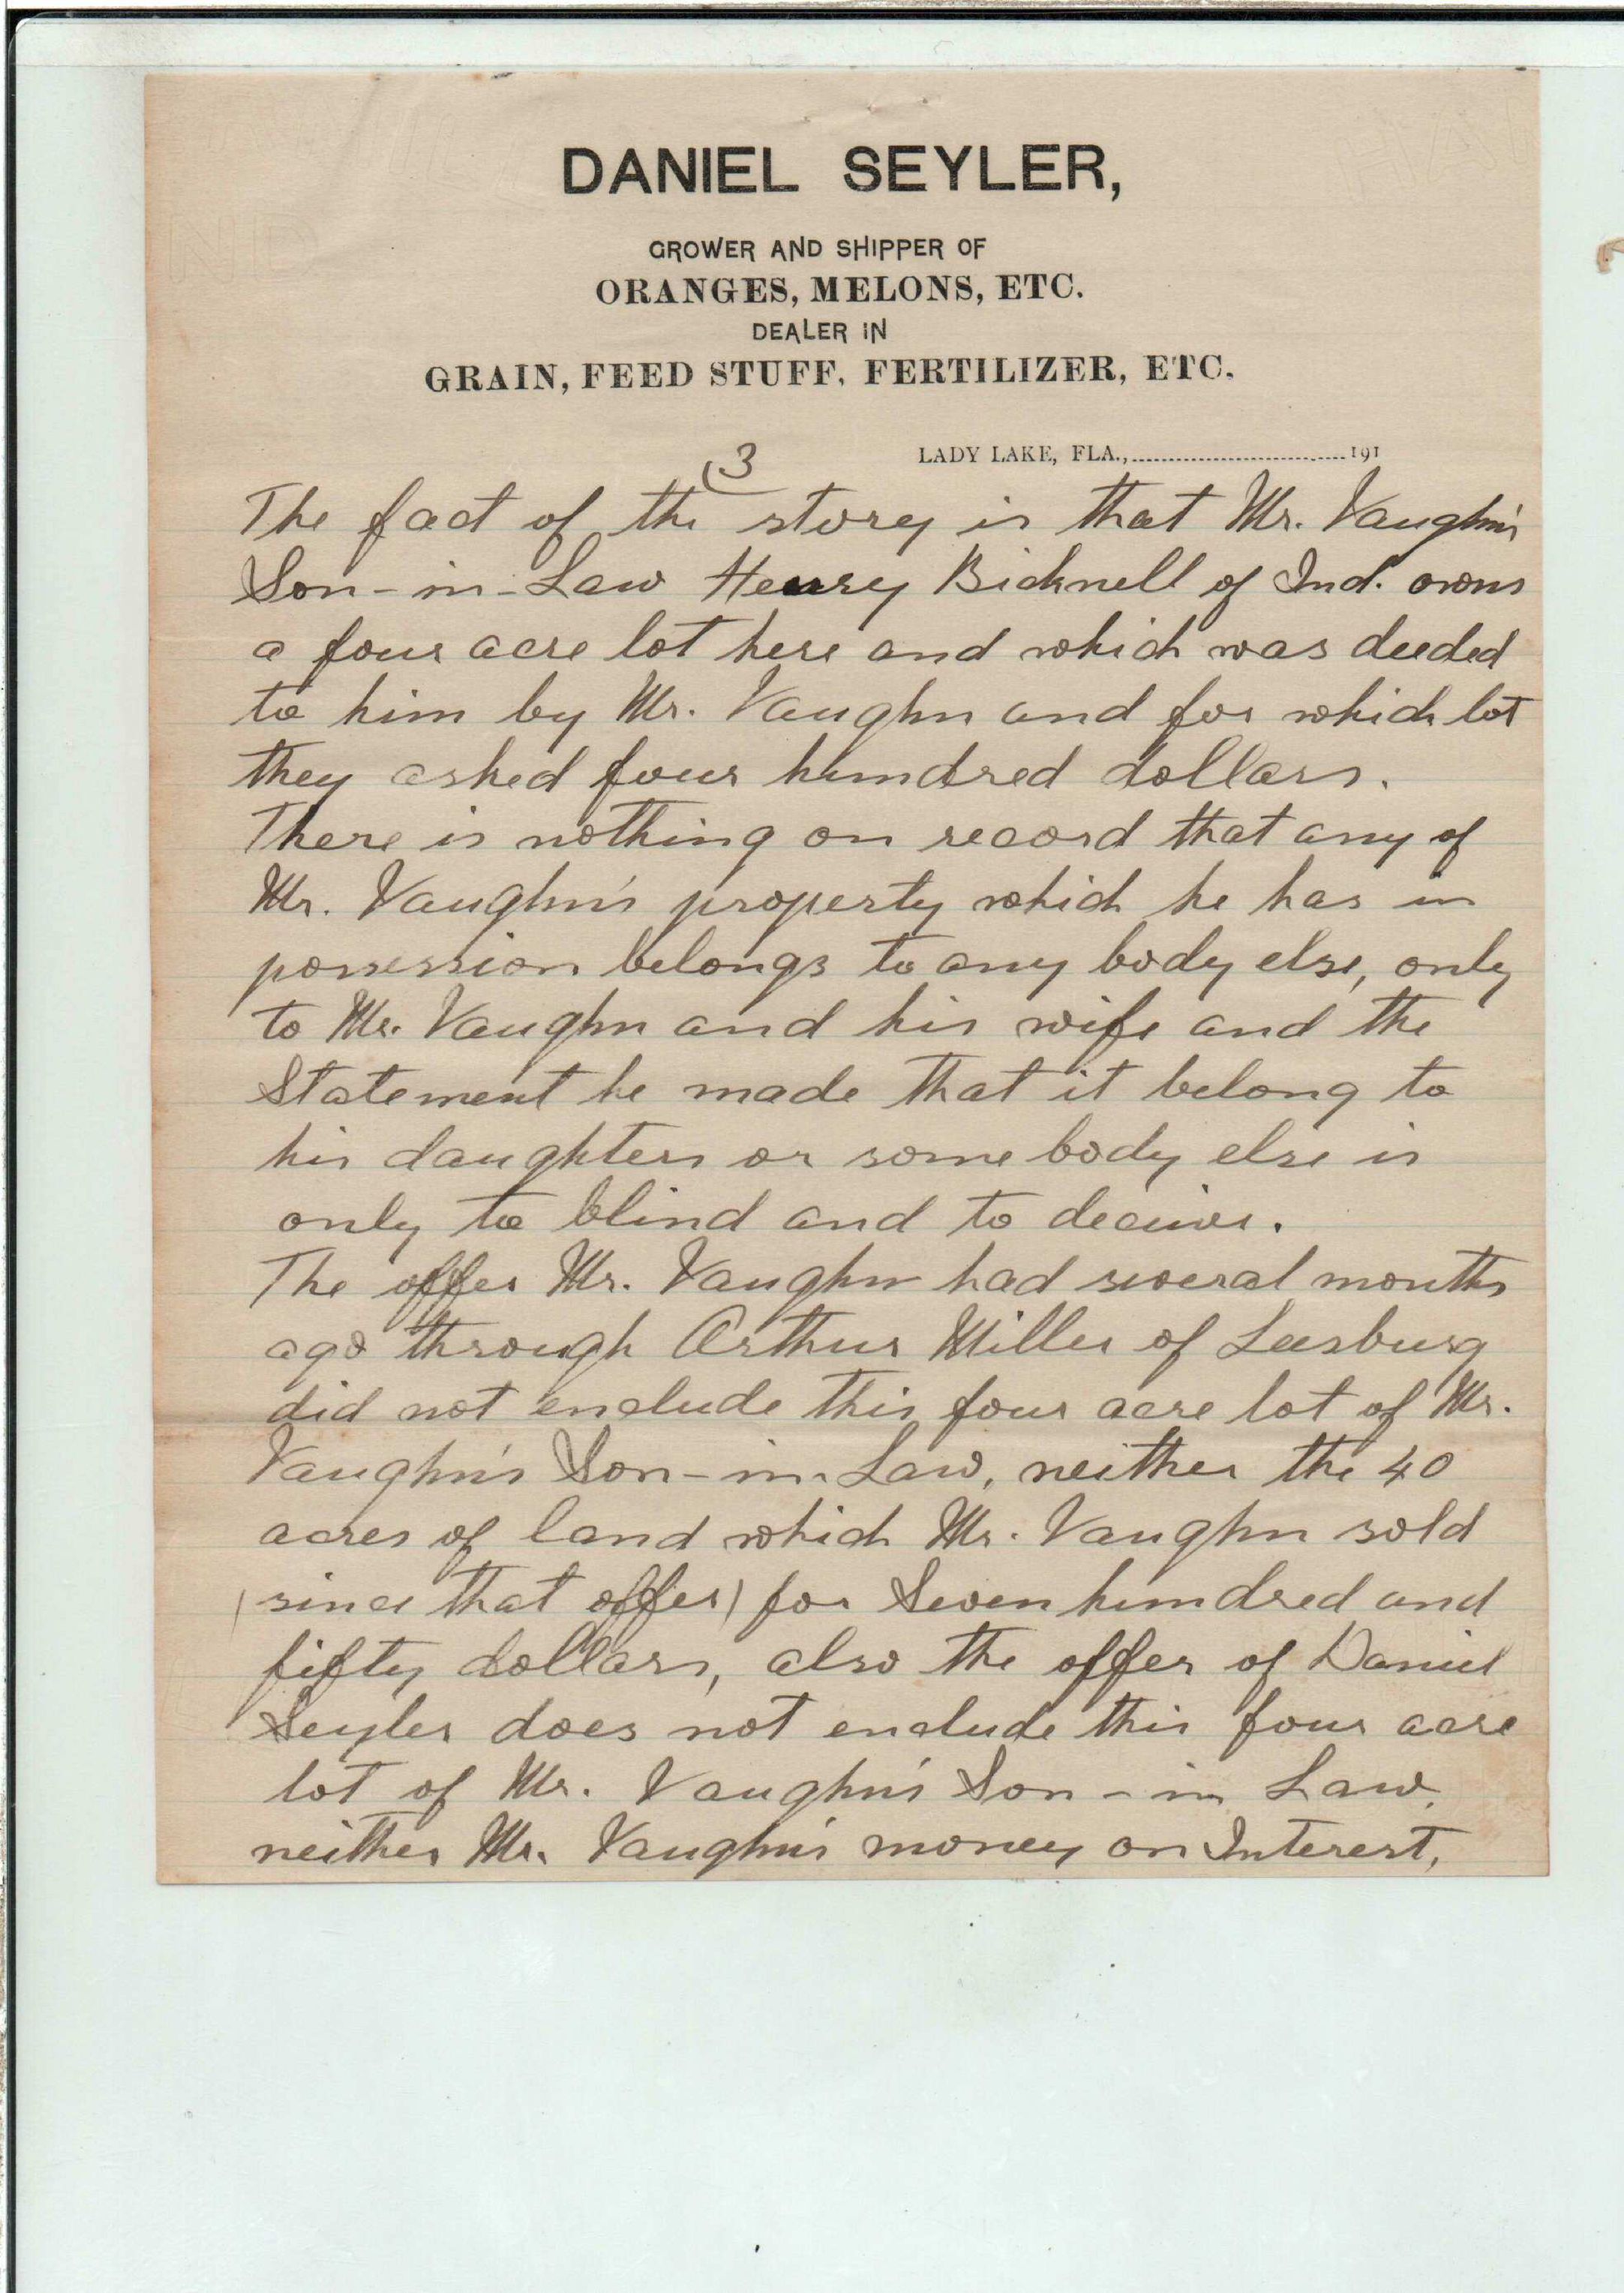 DANIEL SEYLER,
GROWER AND SHIPPER OF
ORANGES, MELONS, ETC.
DEALER IN
GRAIN, FEED STUFF, FERTILIZER, ETC.
LADY LAKE, FLA.,..............................191
(3
The fact of the story is that Mr. Vaughn's
Son-in-Law Henry Bicknell of Ind. owns
a four acre lot here and which was deeded
to him by Mr. Vaughn and for which lot
they asked four hundred dollars.
There is nothing on record that any of
Mr. Vaughn's property which he has in
possession belongs to any body else, only
to Mr. Vaughn and his wife and the
Statement he made that it belong to
his daughters or some body else is
only to blind and to deceive.
The offer Mr. Vaughn had several months
ago through Arthur Miller of Leesburg
did not enclude this four acre lot of Mr.
Vaughn's Son-in-Law, neither the 40
acres of land which Mr. Vaughn sold
(since that offer) for Seven hundred and
fifty dollars, also the offer of Daniel
Seyler does not enclude this four acre
lot of Mr. Vaughn's Son-in Law,
neither Mr. Vaughn's money on Interest,